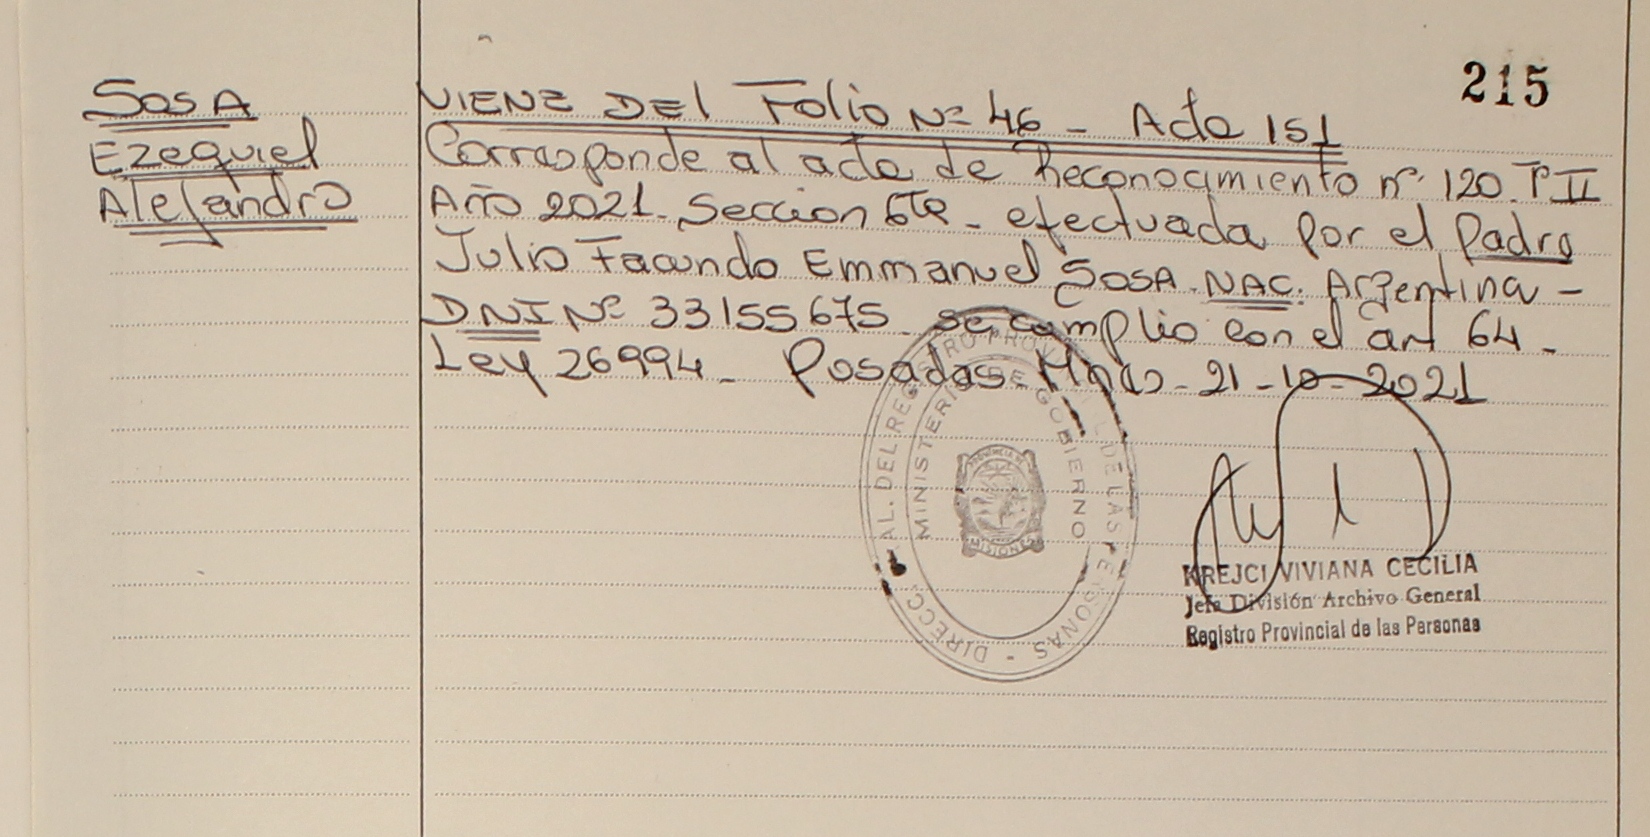 215
SOSA
Ezequiel
Alejandro
VIENE DEL Folio Nº 46 - Acta 151
Corresponde al acta de Reconocimiento nº 120 Tº II
Año 2021. Seccion 6ta - efectuada por el Padre
Julio Facundo Emmanuel SOSA. NAC. Argentina -
DNI Nº 33155675 se cumplio con el art 64 -
Ley 26994 - Posadas Mnes - 21 - 10 - 2021
DIRECC. GRAL. DEL REGISTRO PROVINCIAL DE LAS PERSONAS -
MINISTERIO DE GOBIERNO
PROVINCIA DE
MISIONES
KREJCI VIVIANA CECILIA
Jefa División Archivo General
Registro Provincial de las Personas